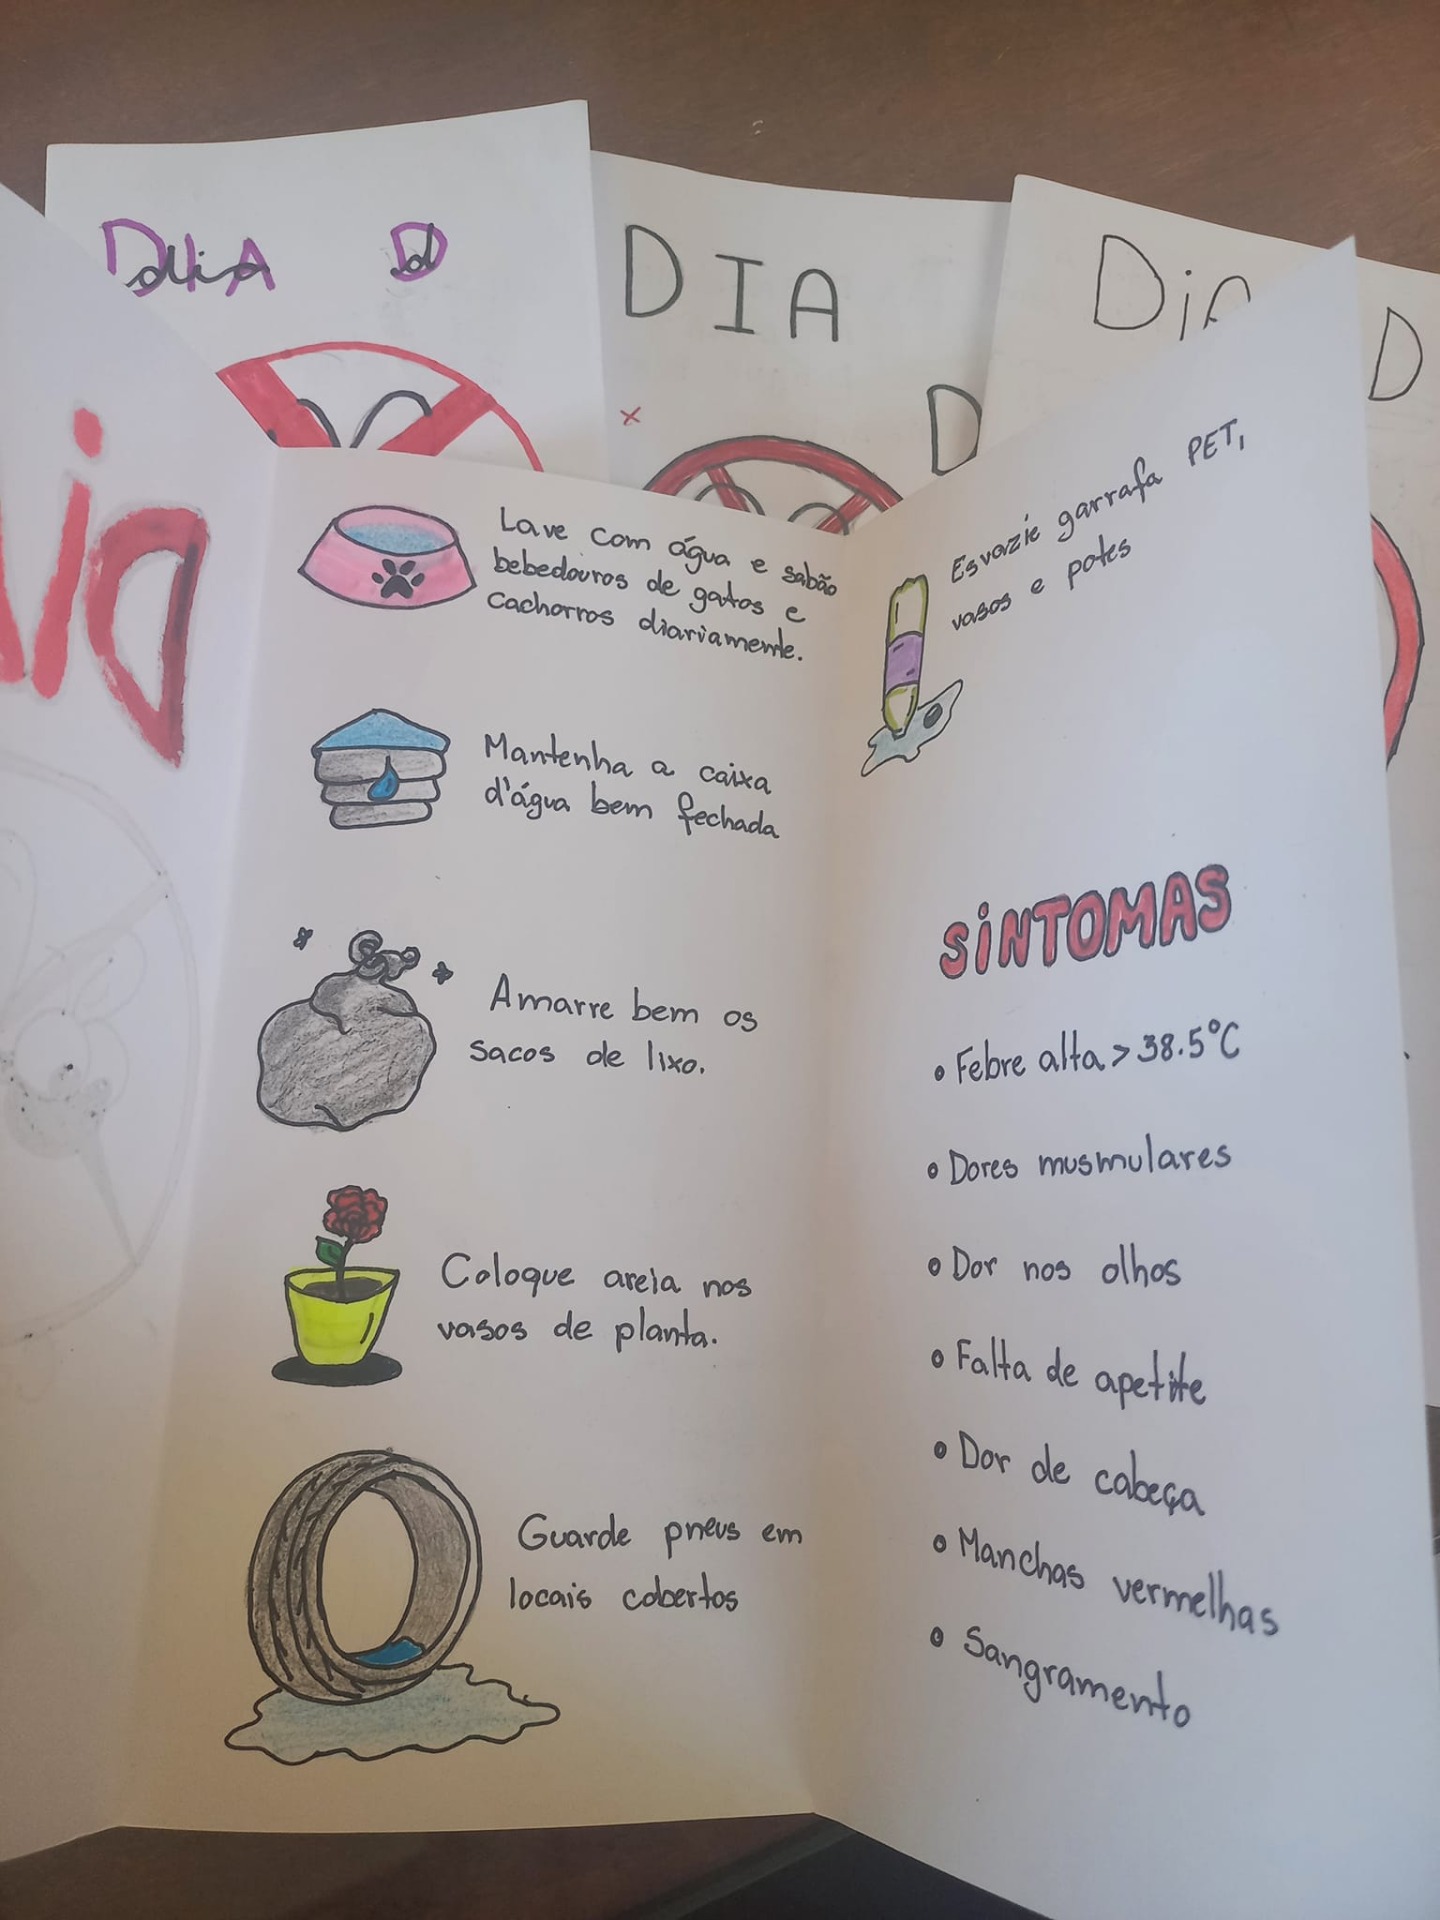 DIA D
dia d
DIA
D
DiA D
Di
Lave com água e sabão
bebedouros de gatos e
cachorros diariamente.
Mantenha a caixa
d'água bem fechada
Amarre bem os
sacos de lixo.
Coloque areia nos
vasos de planta.
Guarde pneus em
locais cobertos
Esvazie garrafa PET,
vasos e potes
SiNTOMAS
• Febre alta > 38.5°C
• Dores musmulares
• Dor nos olhos
• Falta de apetite
• Dor de cabeça
• Manchas vermelhas
• Sangramento